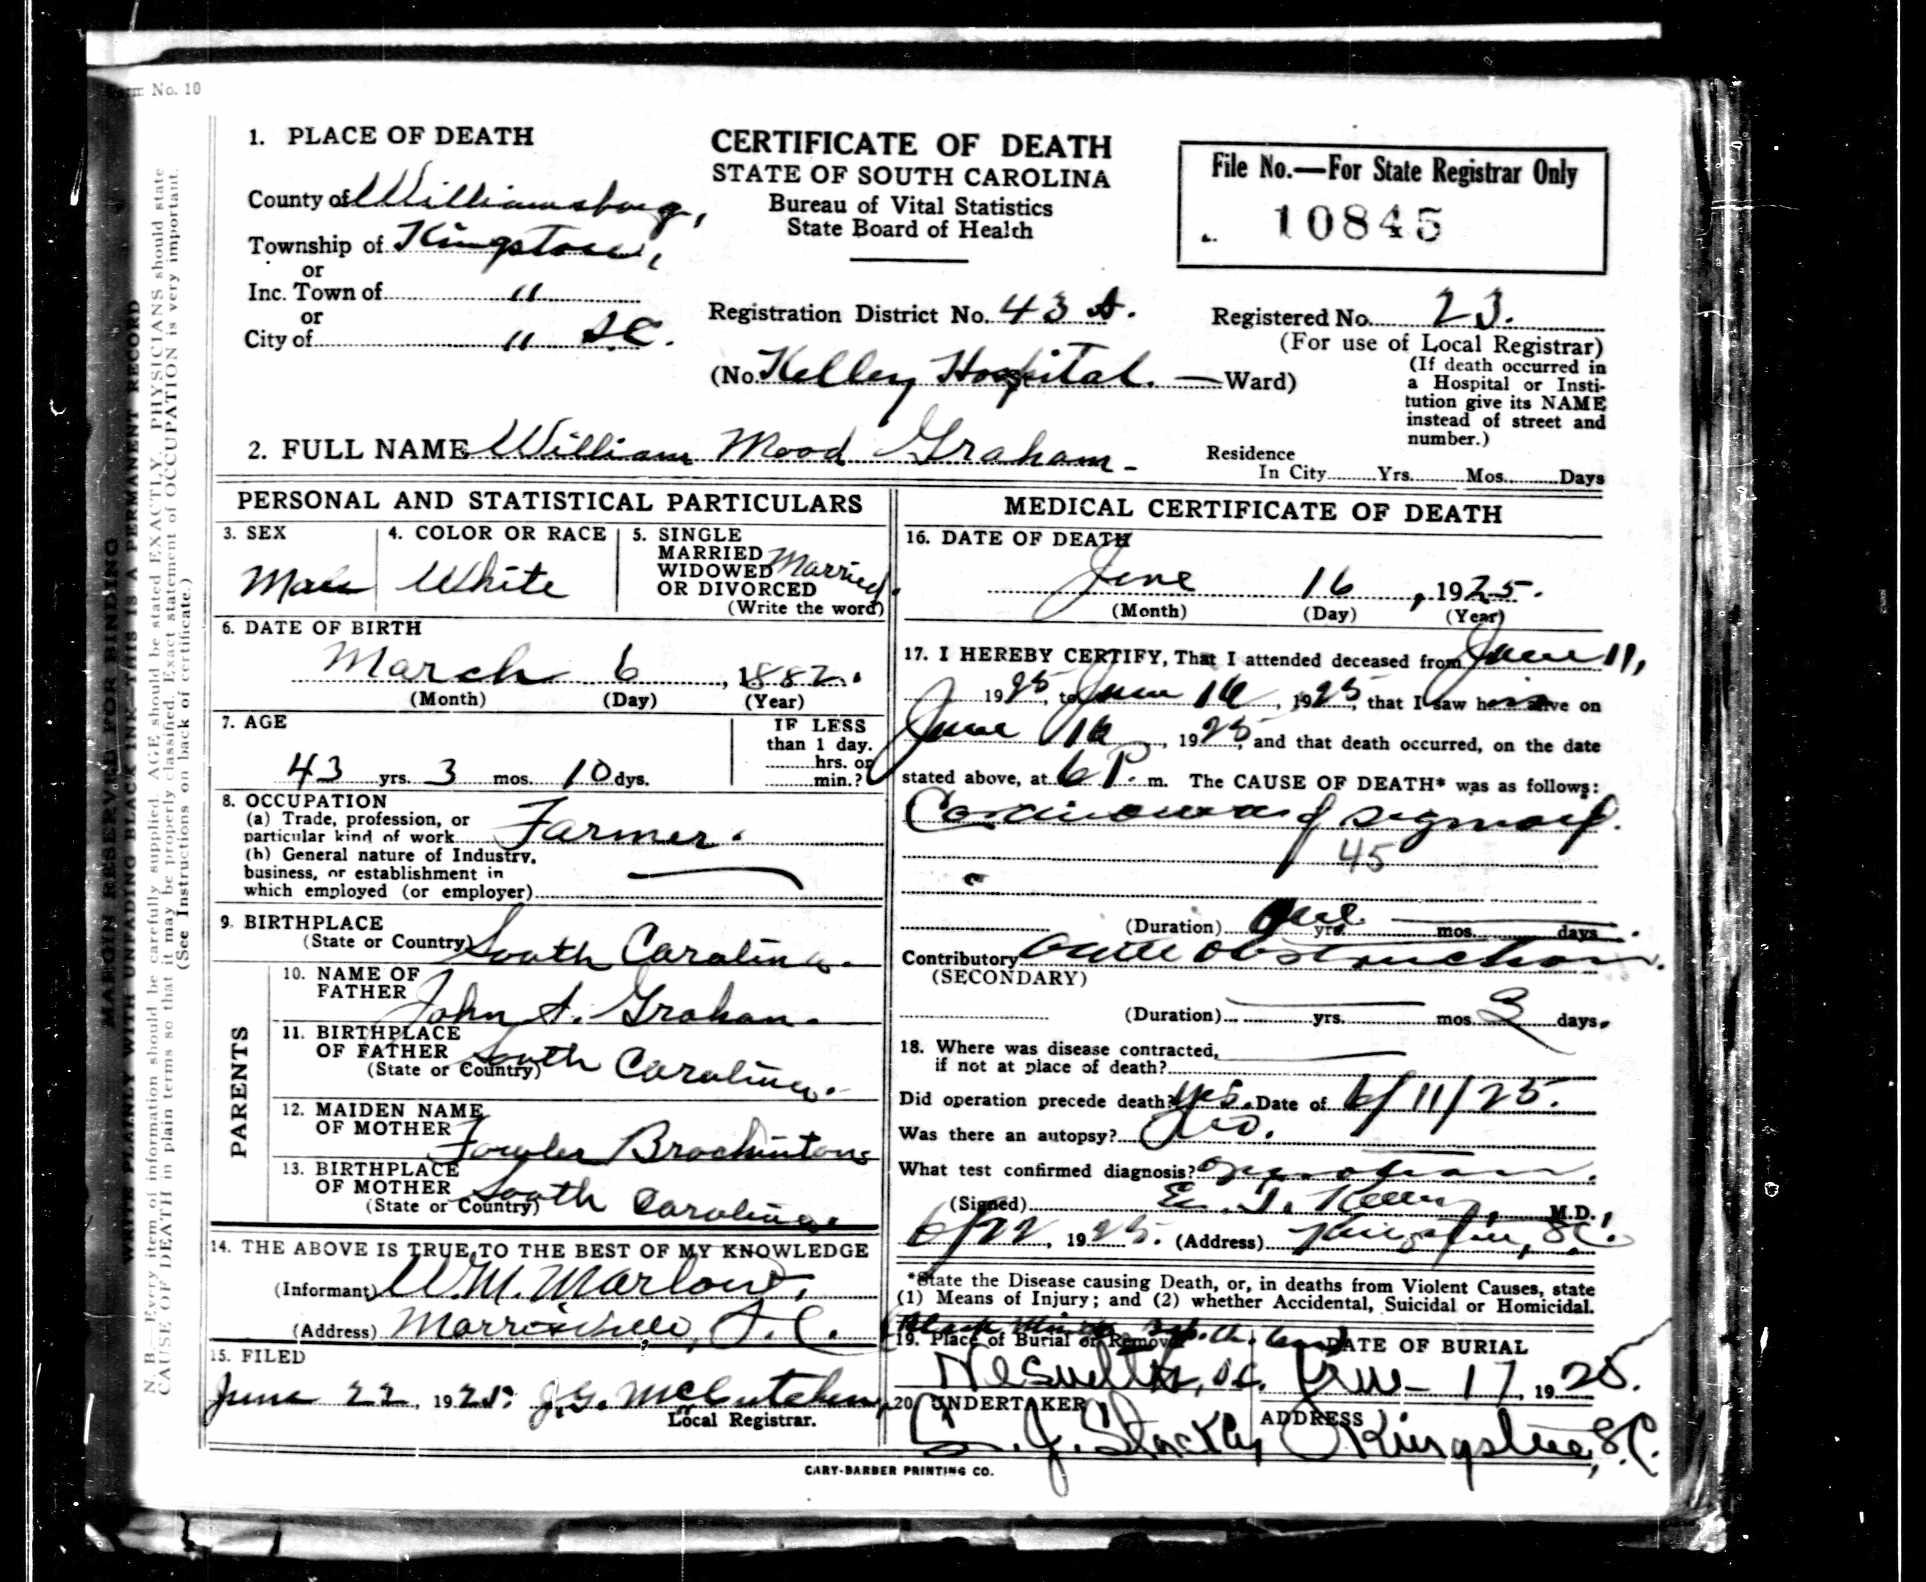 Form No. 10
1. PLACE OF DEATH
County of Williamsburg,
Township of Kingstree,
or
Inc. Town of "
or
City of " S.C.
CERTIFICATE OF DEATH
STATE OF SOUTH CAROLINA
Bureau of Vital Statistics
State Board of Health
File No.—For State Registrar Only
10845
Registration District No. 43 A.
Registered No. 23.
(For use of Local Registrar)
(No. Kelley Hospital. — Ward)
(If death occurred in
a Hospital or Insti-
tution give its NAME
instead of street and
number.)
2. FULL NAME William Mood Graham -
Residence
In City Yrs. Mos. Days
PERSONAL AND STATISTICAL PARTICULARS
3. SEX
Male
4. COLOR OR RACE
White
5. SINGLE
MARRIED
WIDOWED
OR DIVORCED
(Write the word)
Married.
6. DATE OF BIRTH
March 6, 1882.
(Month) (Day) (Year)
7. AGE
43 yrs. 3 mos. 10 dys.
IF LESS
than 1 day.
hrs. or
min.?
8. OCCUPATION
(a) Trade, profession, or
particular kind of work Farmer.
(b) General nature of Industry,
business, or establishment in
which employed (or employer)
9. BIRTHPLACE
(State or Country) South Carolina.
PARENTS
10. NAME OF
FATHER John A. Graham.
11. BIRTHPLACE
OF FATHER
(State or Country) South Carolina.
12. MAIDEN NAME
OF MOTHER Fowler Brockinton
13. BIRTHPLACE
OF MOTHER
(State or Country) South Carolina.
14. THE ABOVE IS TRUE TO THE BEST OF MY KNOWLEDGE
(Informant) W.M. Marlow,
(Address) Morrisville, S.C.
15. FILED
June 22, 1925. J.G. McCutchen,
Local Registrar.
MEDICAL CERTIFICATE OF DEATH
16. DATE OF DEATH
June 16, 1925.
(Month) (Day) (Year)
17. I HEREBY CERTIFY, That I attended deceased from June 11,
1925, to June 16, 1925, that I saw him alive on
June 16, 1925, and that death occurred, on the date
stated above, at 6 P. m. The CAUSE OF DEATH* was as follows:
Carcinoma of sigmoid.
45
(Duration) one yrs. mos. days
Contributory acute obstruction.
(SECONDARY)
(Duration) yrs. mos. 3 days.
18. Where was disease contracted,
if not at place of death?
Did operation precede death? yes. Date of 6/11/25.
Was there an autopsy? No.
What test confirmed diagnosis? Operation.
(Signed) E. T. Kelley, M.D.
6/22, 1925. (Address) Kingstree, S.C.
*State the Disease causing Death, or, in deaths from Violent Causes, state
(1) Means of Injury; and (2) whether Accidental, Suicidal or Homicidal.
19. Place of Burial or Removal
Black Mingo
Nesmith, S.C.
DATE OF BURIAL
June 17, 1925.
20. UNDERTAKER
J. Stackley
ADDRESS
Kingstree, S.C.
CARY-BARBER PRINTING CO.
MARGIN RESERVED FOR BINDING
WRITE PLAINLY WITH UNFADING BLACK INK—THIS IS A PERMANENT RECORD
N. B.—Every item of information should be carefully supplied. AGE should be stated EXACTLY. PHYSICIANS should state
CAUSE OF DEATH in plain terms so that it may be properly classified. Exact statement of OCCUPATION is very important.
(See Instructions on back of certificate.)